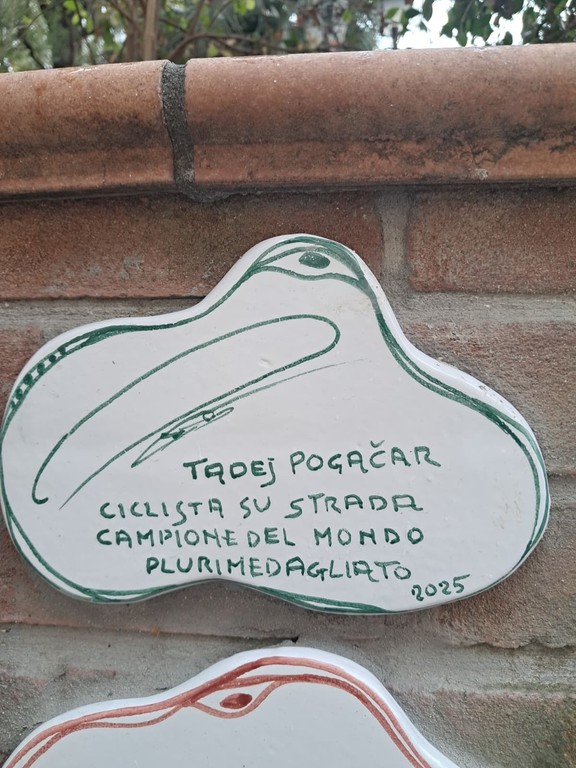 TADEJ POGAČAR
CICLISTA SU STRADA
CAMPIONE DEL MONDO
PLURIMEDAGLIATO
2025